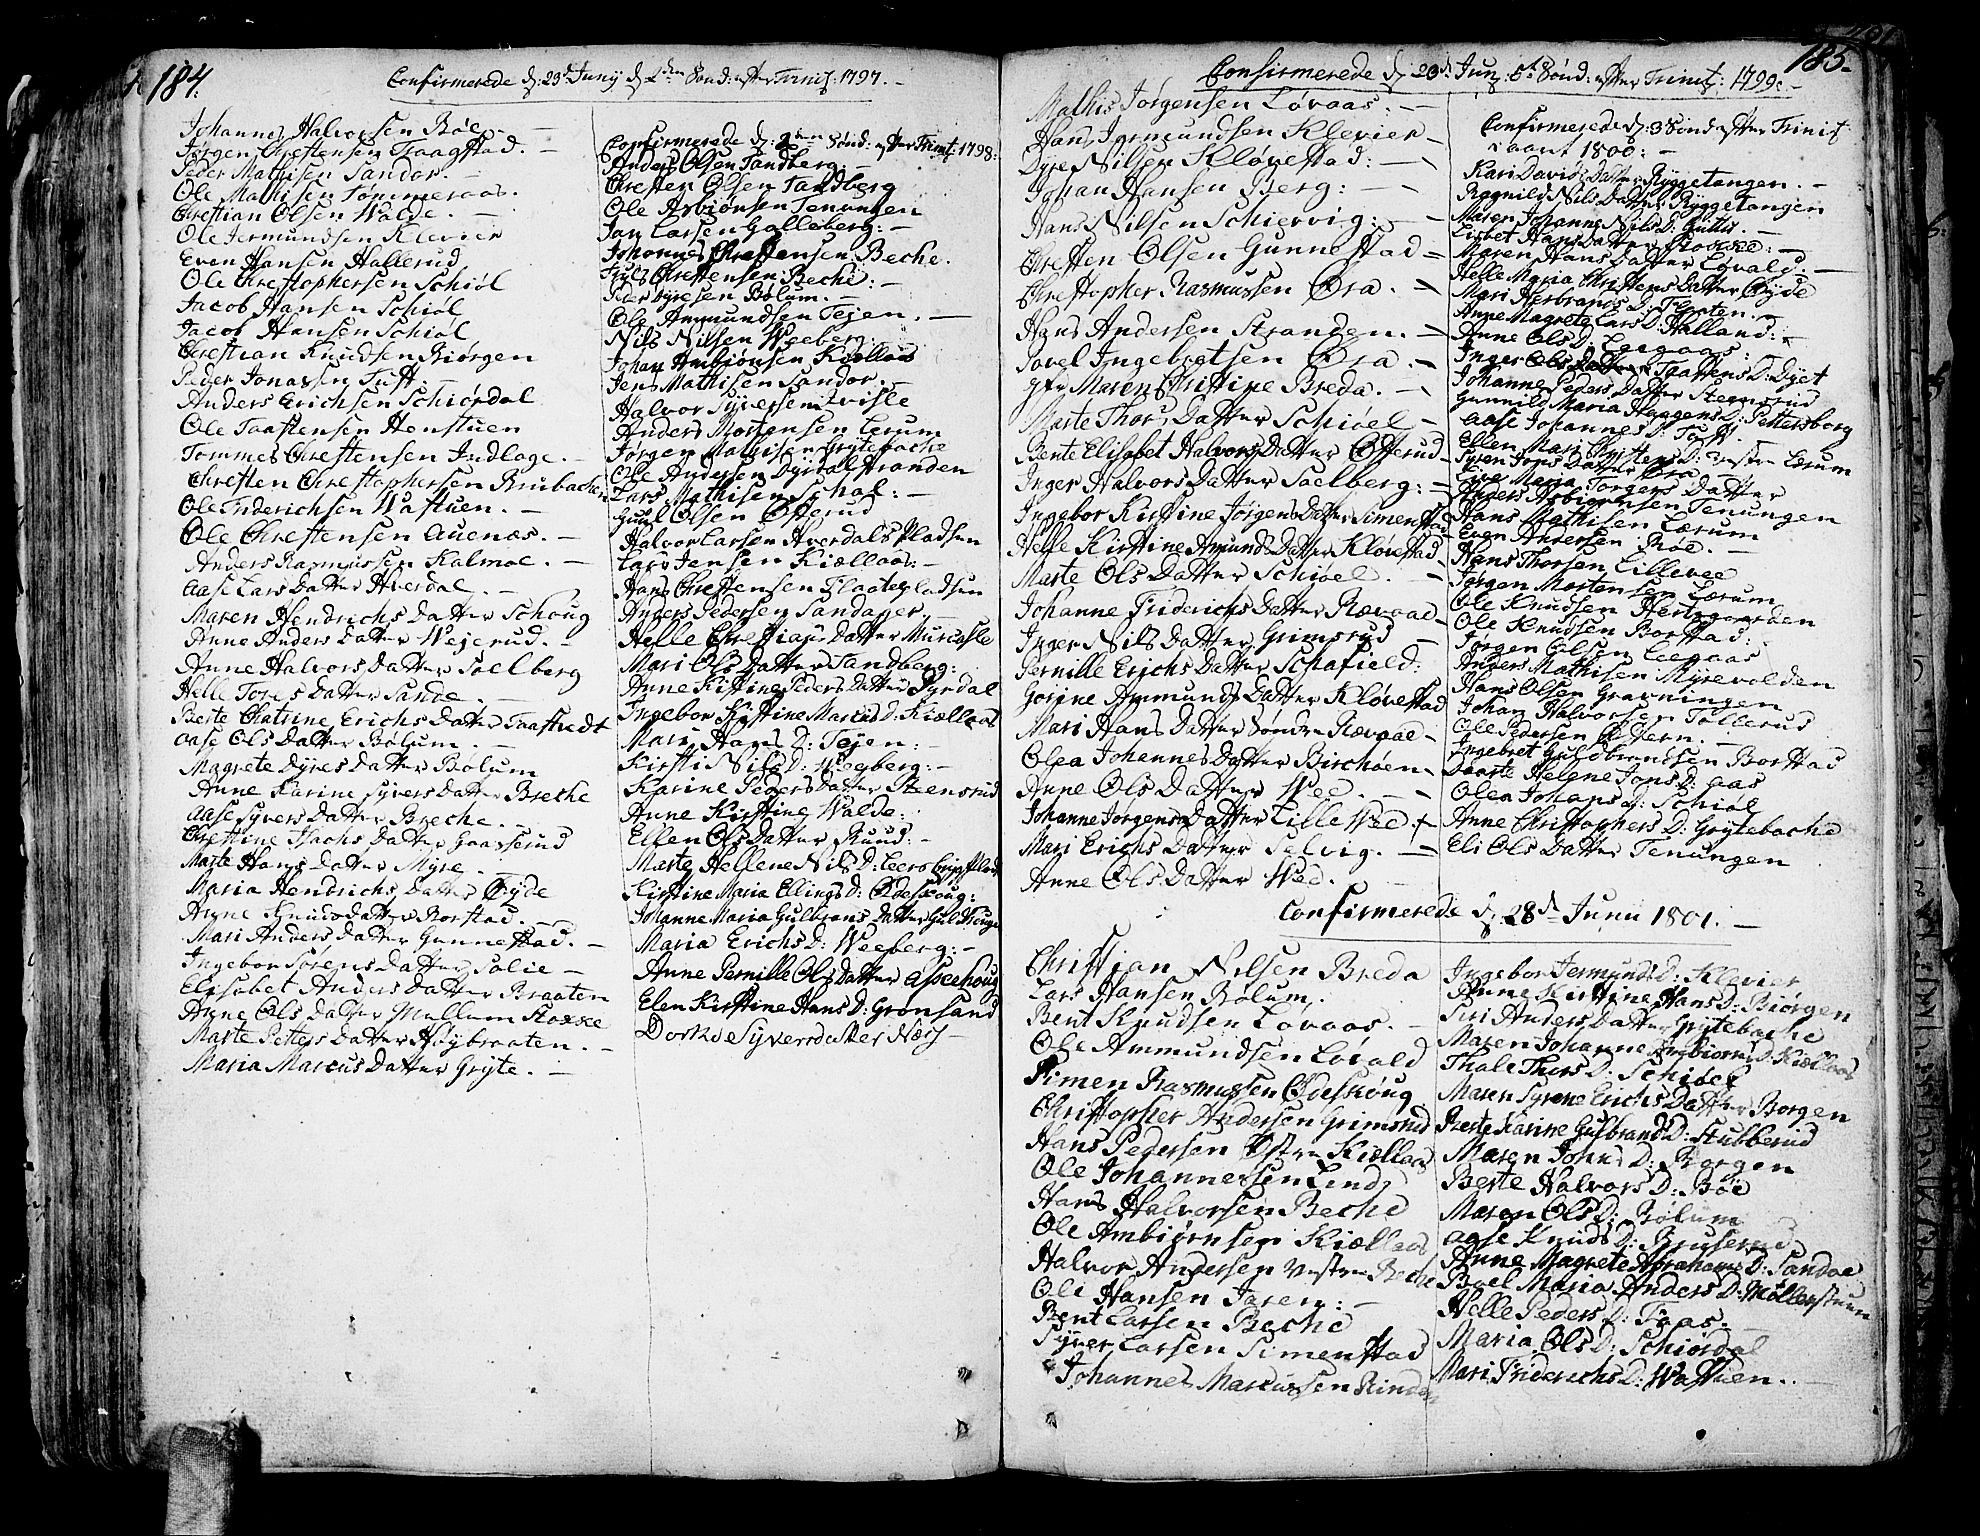 184.
Confirmerede d: 23d Junij d 2den Sønd: efter Trinit: 1797. –
Johannes Halvorsen Bøe –
Jørgen Chrestensen Taagstad. –
Peder Mathisen Sandor. –
Ole Mathisen Tømmeraas.
Chrestian Olsen Walde. –
Ole Jermundsen Klevier
Even Hansen Hallerud
Ole Chrestophersen Schiøl
Jacob Hansen Schiøl
Jacob Hansen Schiøl
Chrestian Knudsen Biørgen
Peder Jonassen Tuft. –
Anders Erichsen Schiørdal
Ole Taastensen Henstuen
Tommes Chrestensen Indlage. –
Chresten Chrestophersen Brubachen
Ole Friderichsen Wastuen. –
Ole Chrestensen Auenæs. –
Anders Rasmussen Kalmoe. –
Aase Lars Datter Hverdal. –
Maren Hendrichs Datter Schoug
Anne Anders Datter Wejerud. –
Anne Halvors Datter Soelberg
Helle Tores Datter Sande. –
Berte Chatrine Erichs Datter Taastvedt
Aase Ols Datter Bolum. –
Magrete Dyres Datter Bolum
Anne Karine Syvers Datter Breche
Aase Syvers Datter Breche. –
Chrestine Isachs Datter Gaasserud
Marte Hans Datter Myre.
Maria Hendrichs Datter Øyde
Anne Knuds datter Borstad. –
Mari Anders Datter Gunnestad. –
Ingebor Sørens Datter Solie –
Elisabet Anders Datter Braaten
Anne Ols Datter Mellum Stokke
Marte Petters Datter Høybraaten. –
Maria Marcus Datter Gryte. –
Confirmerede d: 2den Sønd: efter Trinit: 1798:
Anders Olsen Tandberg: –
Chresten Olsen Tandberg
Ole Asbiønsen Tenungen
Jan Larsen Golleberg: –
Johannes Chrestensen Beche.
Truls Chrestensen Beche: –
Peder Dyresen Bolum. –
Ole Ammundsen Tejen. –
Nils Nilsen Weeberg:
Johan Ambiønsen Kiellaas
Jens Mathisen Sandor. –
Halvor Syversen Tvisle
Anders Mortensen Lerum
Jørgen Mathisen Grytebache
Ole Andersen Dyrdalstranden
Lars Mathisen Schaf: –
Guul Olsen Ofterud
Halvor Larsen Hverdals Pladsen
Lars Jensen Kiellaas: –
Hans Chrestensen Flaatepladsen
Anders Pedersen Sandager
Helle Chrestians Datter Murcasle
Mari Ols Datter Tandberg:
Anne Kirstine Peders Datter Dyrdal
Ingebor Kirstine Marcus D: Kiellaas
Mari Hans D: Tejen: –
Kirsti Nils D: Weeberg: –
Karine Peders Datter Steensrud
Anne Kirstine Walde:
Ellen Ols Datter Ruud: –
Marte Hellene Nils D: Leersbrips Plads
Kirstine Maria Ellings D: Ødeskoug:
Johanne Maria Gulbrans Datter Guldskouge
Maria Erichs D: Weeberg: –
Anne Pernille Ols Datter Aspeehoug
Elen Kirstine Hans D: Grønsand
Dorthe Syversdatter Nærs –
185.
Confirmerede d: 23d Jun: 5te Sønd: efter Trinit: 1799. –
Mathis Jørgensen Løvaas: –
Hans Jørmundsen Klevier –
Dyre Nilsen Kløvestad: –
Johan Hansen Berg: –
Hans Nilsen Schiervig: –
Chresten Olsen Gunnestad –
Chrestopher Rasmussen Øra. –
Hans Andersen Stranden. –
Povel Ingebrgtsen Øra. –
Jfr Maren Christine Breda. –
Marte Thors Datter Schiøel –
Bente Elisabet Halvors Datter Ofterud –
Inger Halvors Datter Soelberg: –
Ingebor Kirstine Jørgens Datter Simenstad
Helle Kirstine Amunds Datter Kløvestad
Marte Ols Datter Schiøel. –
Johanne Friderichs Datter Rævaae –
Inger Nils Datter Grimsrud –
Pernille Erichs Datter Schafield:
Gorine Ammunds Datter Kløvestad
Mari Hans Datter Søndre Rævaae –
Olea Johannes Datter Birchøen –
Anne Ols Datter Wee. –
Johanne Jørgens Datter Lille Wee. –
Mari Erichs Datter Selvig. –
Anne Ols Datter Wee. –
Confirmerede d: 3 Sønd efter Trinit:
i aaret 1800: –
Kari Davids Datter Ryggetangen. –
Ragnild Nils Datter Ryggetangen
Maren Johanne Nils D: Guttis. –
Lisbet Hans Datter Stokke: –
Maren Hans Datter Løvald: –
Helle Maria Christens Datter Øyde
Mari Herbrands D: Groten. –
Anne Magrete Lars D: Halland: –
Anne Ols D: Leegaas: –
Inger Ols Datter Taastens D: Dyet
Johanne Peders Datter Steensrud
Gunnild Maria Haagens D: Pettersborg
Aase Johannes D: Toft. –
Ellen Mari Christens D: vestre Lerum
Syren Jons Datter Øra. –
Live Maria Jørgens Datter
Anders Asbiønsen Tenungen
Hans Mathisen Lærum
Even Andersen Bøe. –
Hans Thorsen Lillevee
Jørgen Mortensen Lærum
Ole Knudsen Hertzgaarden
Ole Knudsen Borstad:
Jørgen Olsen Leegaas
Anders Mathisen Myrevolden
Hans Olsen Gravningen
Johan Halvorsen Tollerud
Ole Pedersen Østern. –
Ingebret Guldbrandsen Borstad
Daarte Helene Jons D: Aas
Olea Johans D: Schiøl
Anne Christophers D: Grytebache
Eli Ols Datter Tenungen
Confirmerede d: 28d Junii 1801. –
Christian Nilsen Breda
Lars Hansen Bolum.
Bent Knudsen Løvaas. –
Ole Ammundsen Løvald
Simen Rasmussen Ødeskoug
Christopher Andersen Grimsrud
Hans Pedersen Østre Kiellaas
Ole Johannessen Lind
Hans Halvorsen Beche
Ole Ambiørnsen Kiellaas
Halvor Andersen Vestre Beche
Ole Hansen Jaren: –
Bent Larsen Beche
Syver Larsen Simenstad
Johannes Marcussen Rinde
Ingebor Jermunds D: Klevier
Anne Kirstine Hans D: Biørgen
Siri Anders Datter Grytebache
Maren Johanne Ambiørns D: Kiellaas
Thale Thors D: Schiøel
Maren Syrene Erichs Datter Borgen
Berte Karine Gulbrand D: Stubberud
Maren Jons D: Borgen
Berte Halvors D: Bøe
Maren Ols D: Bolum
Aase Knuds D: Bruserud
Anne Magrete Abrahams D: Sandoe
Boel Maria Anders D: Møllerstuen
Helle Peders D: Faas. –
Maria Ols D: Schiørdal
Mari Friderichs D: Wastuen. –